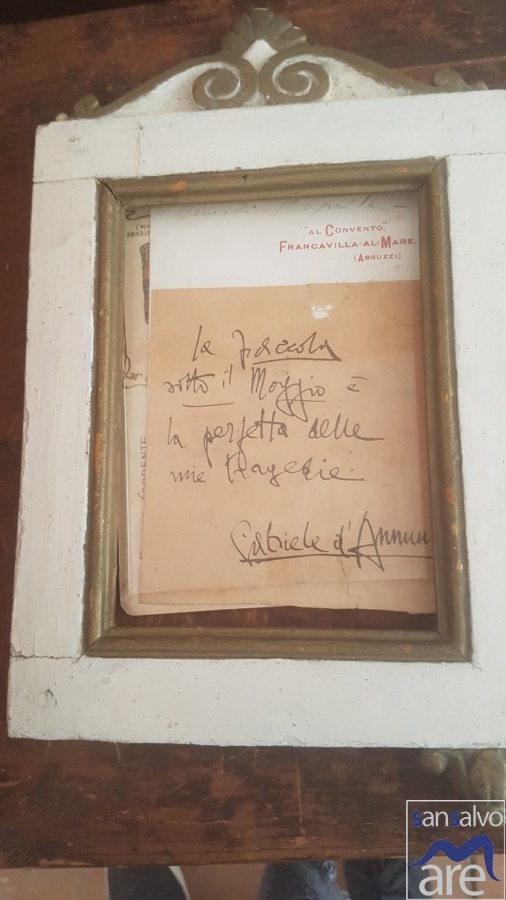 "AL CONVENTO,"
FRANCAVILLA-AL-MARE.
(ABRUZZI)
la fiaccola
sotto il Moggio è
la perfetta delle
mie tragedie.
Gabriele d'Annun
sansalvo
mare